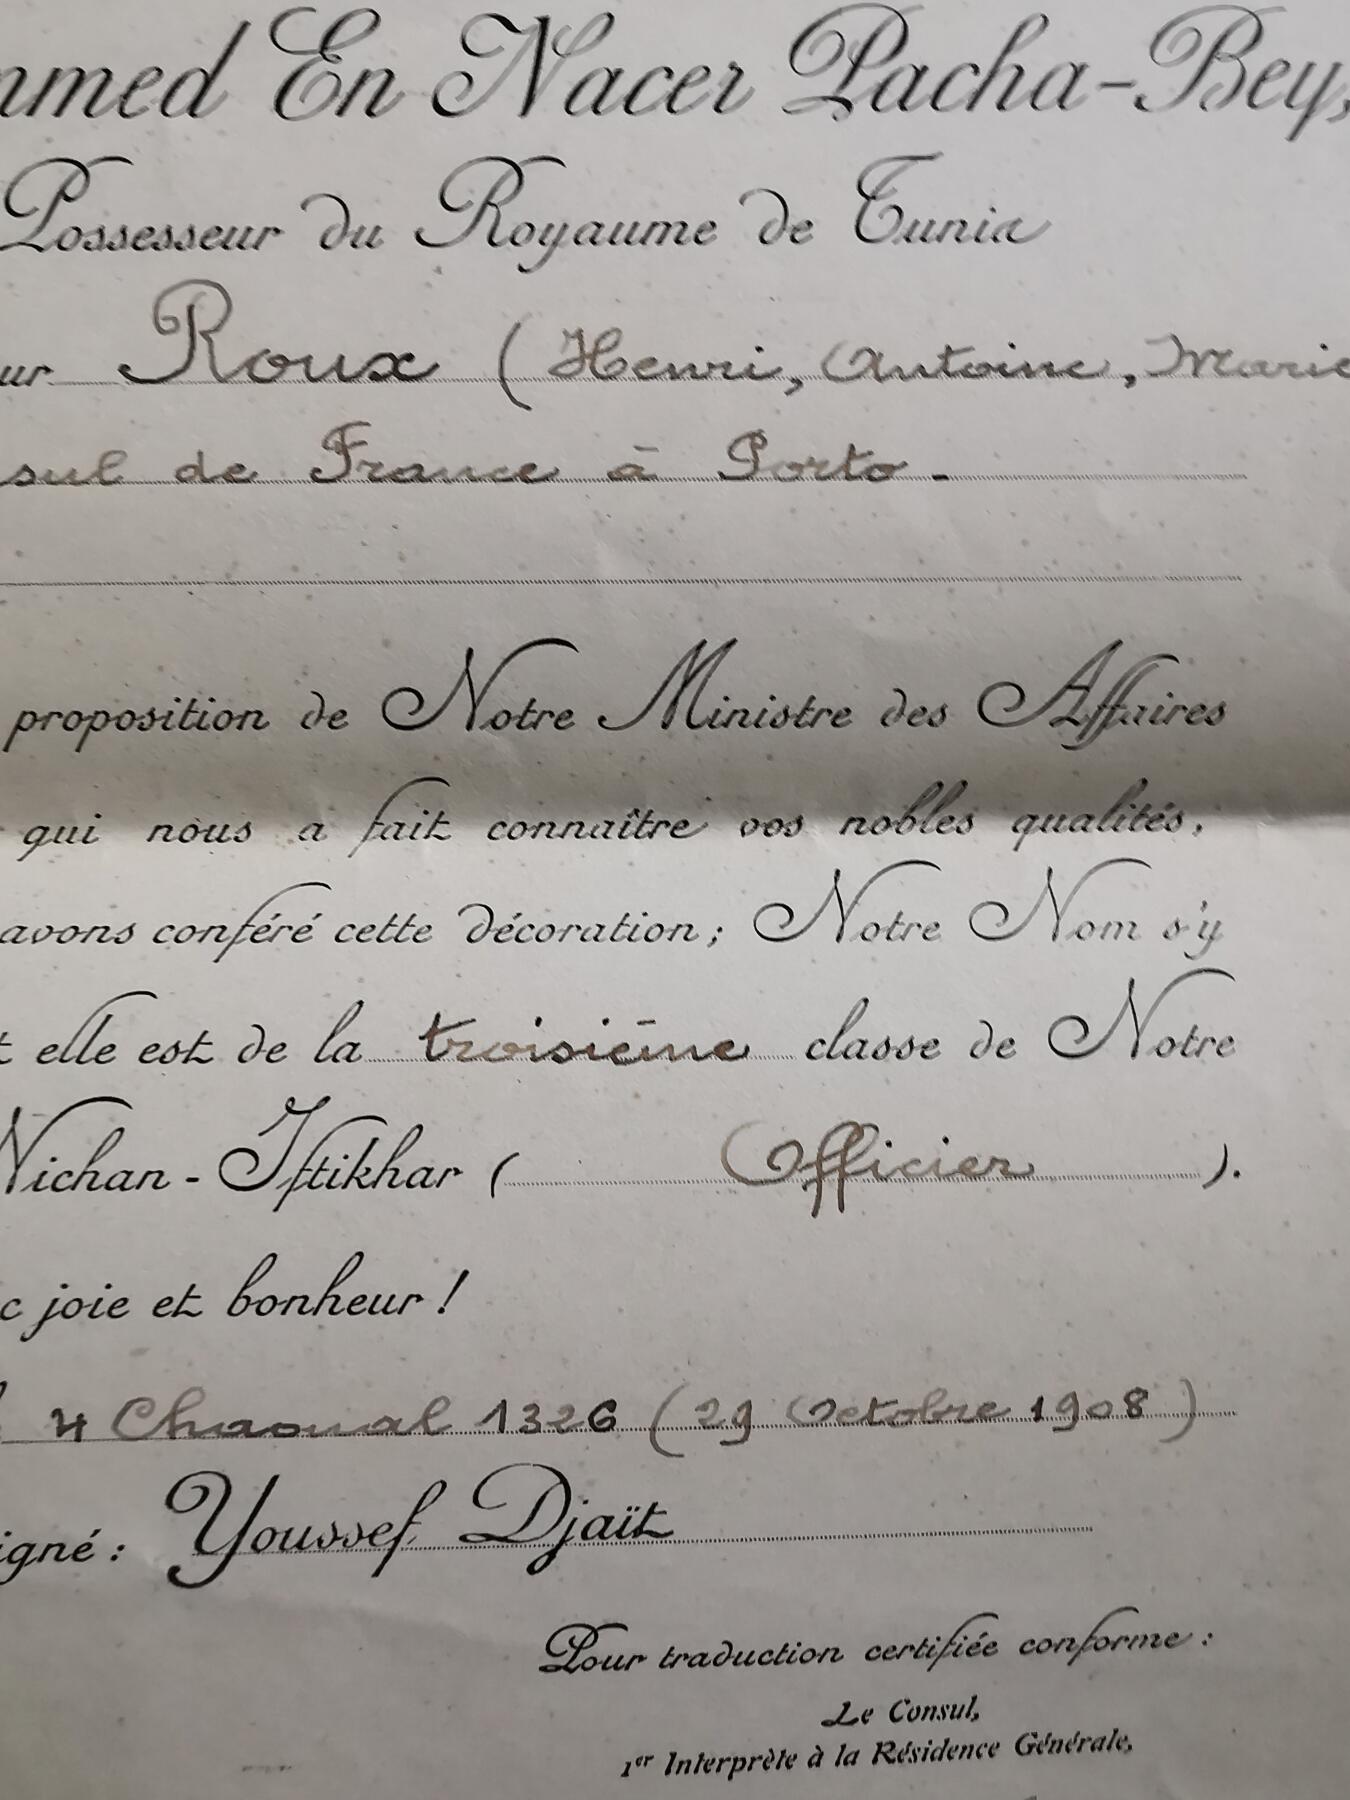 mmed En Nacer Pacha-Bey,
Possesseur du Royaume de Tunis
ur Roux (Henri, Antoine, Marie
sul de France à Porto -
proposition de Notre Ministre des Affaires
qui nous a fait connaître vos nobles qualités,
avons conféré cette décoration; Notre Nom s'y
t elle est de la troisième classe de Notre
Nichan-Iftikhar ( Officier ).
c joie et bonheur !
4 Chaoual 1326 (29 Octobre 1908)
igné : Youssef Djaït
Pour traduction certifiée conforme :
Le Consul,
1er Interprète à la Résidence Générale,